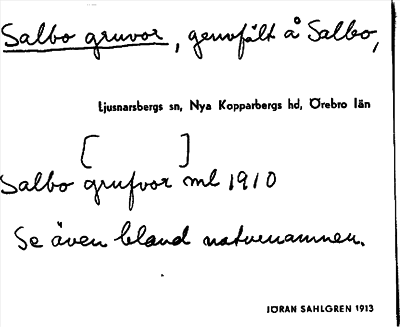 Salbo gruvor, gruvfält å Salbo,
Ljusnarsbergs sn, Nya Kopparbergs hd, Örebro län
[ ]
Salbo grufvor ml 1910
Se även bland naturnamnen.
JÖRAN SAHLGREN 1913